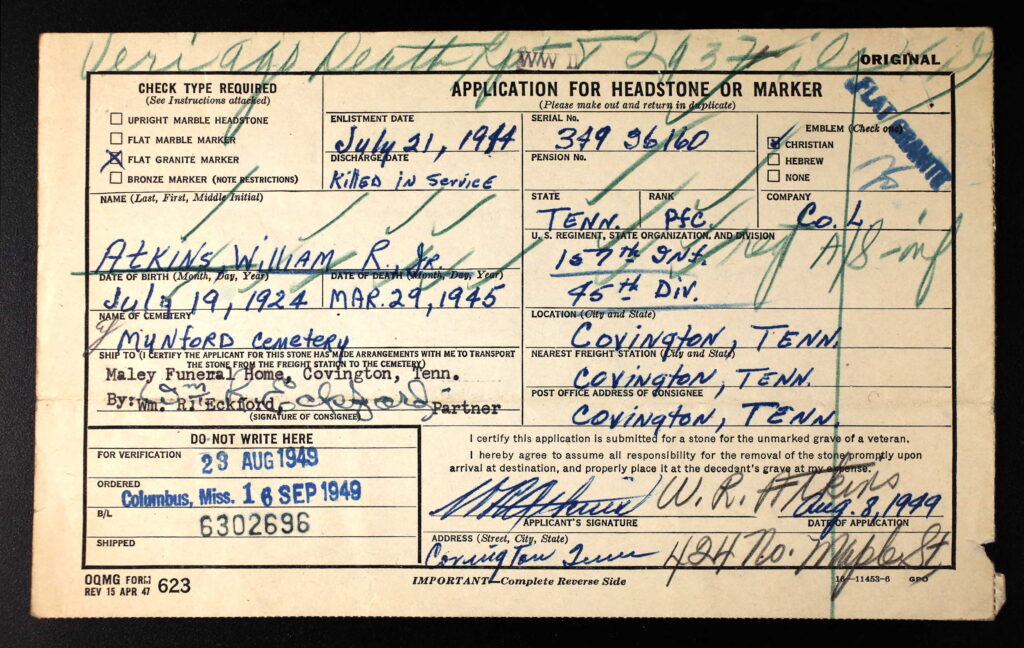 WW II
ORIGINAL
CHECK TYPE REQUIRED
(See Instructions attached)
UPRIGHT MARBLE HEADSTONE
FLAT MARBLE MARKER
FLAT GRANITE MARKER
BRONZE MARKER (NOTE RESTRICTIONS)
APPLICATION FOR HEADSTONE OR MARKER
(Please make out and return in duplicate)
ENLISTMENT DATE
July 21, 1944
DISCHARGE DATE
Killed in Service
SERIAL No.
349 36160
PENSION No.
EMBLEM (Check one)
CHRISTIAN
HEBREW
NONE
FLAT GRANITE
NAME (Last, First, Middle Initial)
Atkins William R., Jr.
STATE
Tenn.
RANK
Pfc.
COMPANY
Co. L
U. S. REGIMENT, STATE ORGANIZATION, AND DIVISION
157th Inf.
45th Div.
DATE OF BIRTH (Month, Day, Year)
July 19, 1924
DATE OF DEATH (Month, Day, Year)
Mar. 29, 1945
NAME OF CEMETERY
Munford Cemetery
LOCATION (City and State)
Covington, Tenn.
SHIP TO (I CERTIFY THE APPLICANT FOR THIS STONE HAS MADE ARRANGEMENTS WITH ME TO TRANSPORT
THE STONE FROM THE FREIGHT STATION TO THE CEMETERY)
Maley Funeral Home, Covington, Tenn.
By: Wm. R. Eckford, Partner
Wm R Eckford
(SIGNATURE OF CONSIGNEE)
NEAREST FREIGHT STATION (City and State)
Covington, Tenn.
POST OFFICE ADDRESS OF CONSIGNEE
Covington, Tenn.
DO NOT WRITE HERE
FOR VERIFICATION
23 AUG 1949
ORDERED
Columbus, Miss. 16 SEP 1949
B/L
6302696
SHIPPED
I certify this application is submitted for a stone for the unmarked grave of a veteran.
I hereby agree to assume all responsibility for the removal of the stone promptly upon
arrival at destination, and properly place it at the decedent's grave at my expense.
W. R. Atkins
Aug. 8, 1949
APPLICANT'S SIGNATURE
DATE OF APPLICATION
ADDRESS (Street, City, State)
Covington Tenn 424 No. Maple St
OQMG FORM
REV 15 APR 47 623
IMPORTANT—Complete Reverse Side
16—11453-6 GPO